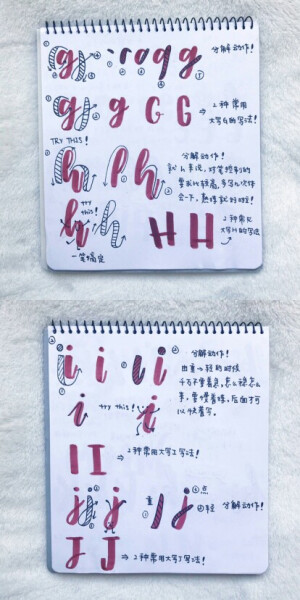 g · r o q g 分解动作!
g g G G ⇒ 2种常用
大写G的写法!
TRY THIS!
h l h 分解动作!
就h来说,对笔控制的
要求比较高,多写几次体
会一下,熟练就好啦!
try this!
h h H H 2种常见
大写H的写法
一笔搞定
i i ι i 分解动作!
由重→轻的时候
千万不要着急,怎么稳怎么
来,要慢着练,后面才可
以快着写。
i try this! i
I I ⇒ 2种常用大写I写法!
j j 重 轻 点 分解动作!
J J ⇒ 2种常用大写J写法!